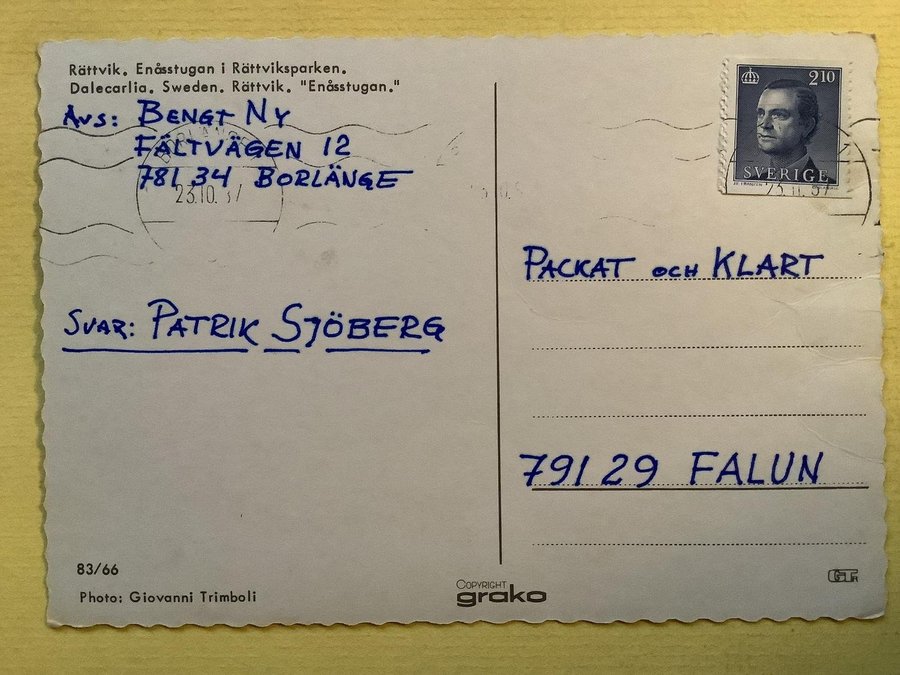 Rättvik. Enåsstugan i Rättviksparken.
Dalecarlia. Sweden. Rättvik. "Enåsstugan."
Avs: BENGT NY
FÄLTVÄGEN 12
781 34 BORLÄNGE
BORLÄNGE
23.10.87
SVAR: PATRIK SJÖBERG
83/66
Photo: Giovanni Trimboli
COPYRIGHT
grako
2.10
SVERIGE
PACKAT OCH KLART
791 29 FALUN